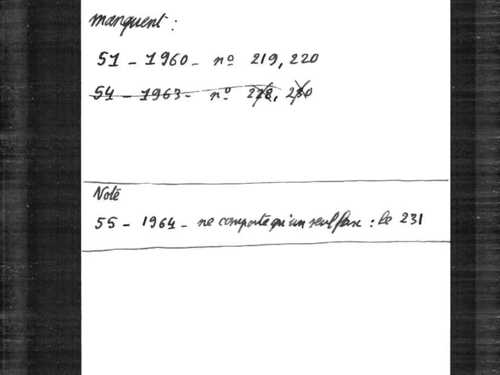 manquent :
51 - 1960 - nº 219, 220
54 - 1963 - nº 228, 230
Note
55 - 1964 - ne comporte qu'un seul fasc : le 231